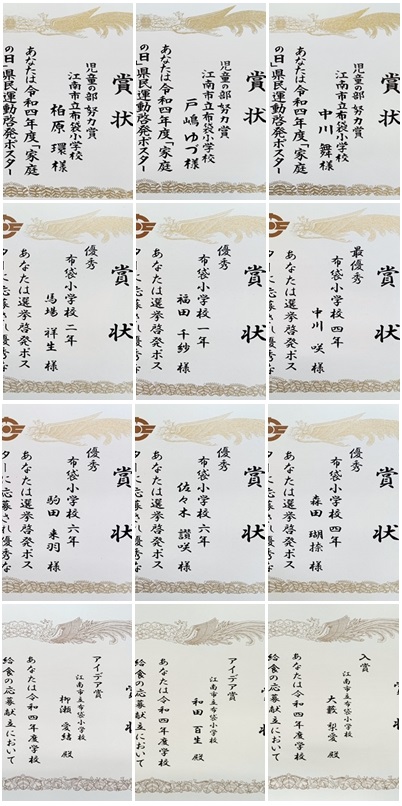 賞状
児童の部 努力賞
江南市立布袋小学校
中川 舞 様
あなたは令和四年度「家庭
の日」県民運動啓発ポスター
児童の部 努力賞
江南市立布袋小学校
戸嶋 ゆづ 様
あなたは令和四年度「家庭
の日」県民運動啓発ポスター
賞状
児童の部 努力賞
江南市立布袋小学校
柏原 環 様
あなたは令和四年度「家庭
の日」県民運動啓発ポスター
賞状
最優秀
布袋小学校 四年
中川 咲 様
あなたは選挙啓発ポス
ターに応募され優秀な
賞状
優秀
布袋小学校 一年
福田 千紗 様
あなたは選挙啓発ポス
ターに応募され優秀な
賞状
優秀
布袋小学校 二年
馬場 祥生 様
あなたは選挙啓発ポス
ターに応募され優秀な
賞状
優秀
布袋小学校 四年
森田 瑚 様
あなたは選挙啓発ポス
ターに応募され優秀な
賞状
優秀
布袋小学校 六年
佐々木 讃咲 様
あなたは選挙啓発ポス
ターに応募され優秀な
賞状
優秀
布袋小学校 六年
駒田 来羽 様
あなたは選挙啓発ポス
ターに応募され優秀な
入賞
江南市立布袋小学校
大藪 梨愛 殿
あなたは令和四年度学校
給食の応募献立において
アイデア賞
江南市立布袋小学校
和田 百生 殿
あなたは令和四年度学校
給食の応募献立において
アイデア賞
江南市立布袋小学校
柳瀬 愛結 殿
あなたは令和四年度学校
給食の応募献立において